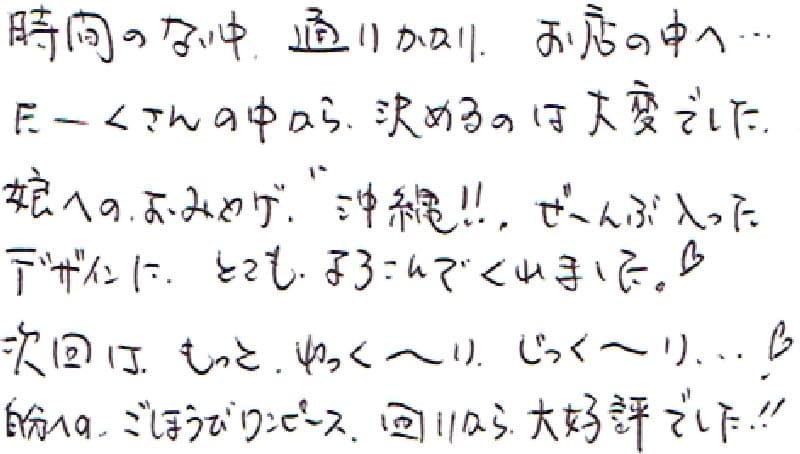 時間のない中、通りかかり、お店の中へ…
たーくさんの中から、決めるのは大変でした、
娘への、おみやげ、"沖縄!!、ぜ〜んぶ入った
デザインに、とても、よろこんでくれました。♡
次回は、もっと、ゆっく〜り、じっく〜り…♡
自分への、ごほうびワンピース、回りから、大好評でした!!